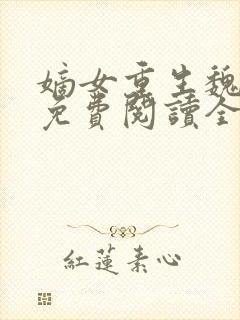 嫡女重生魏
免費閱讀全
紅蓮素心